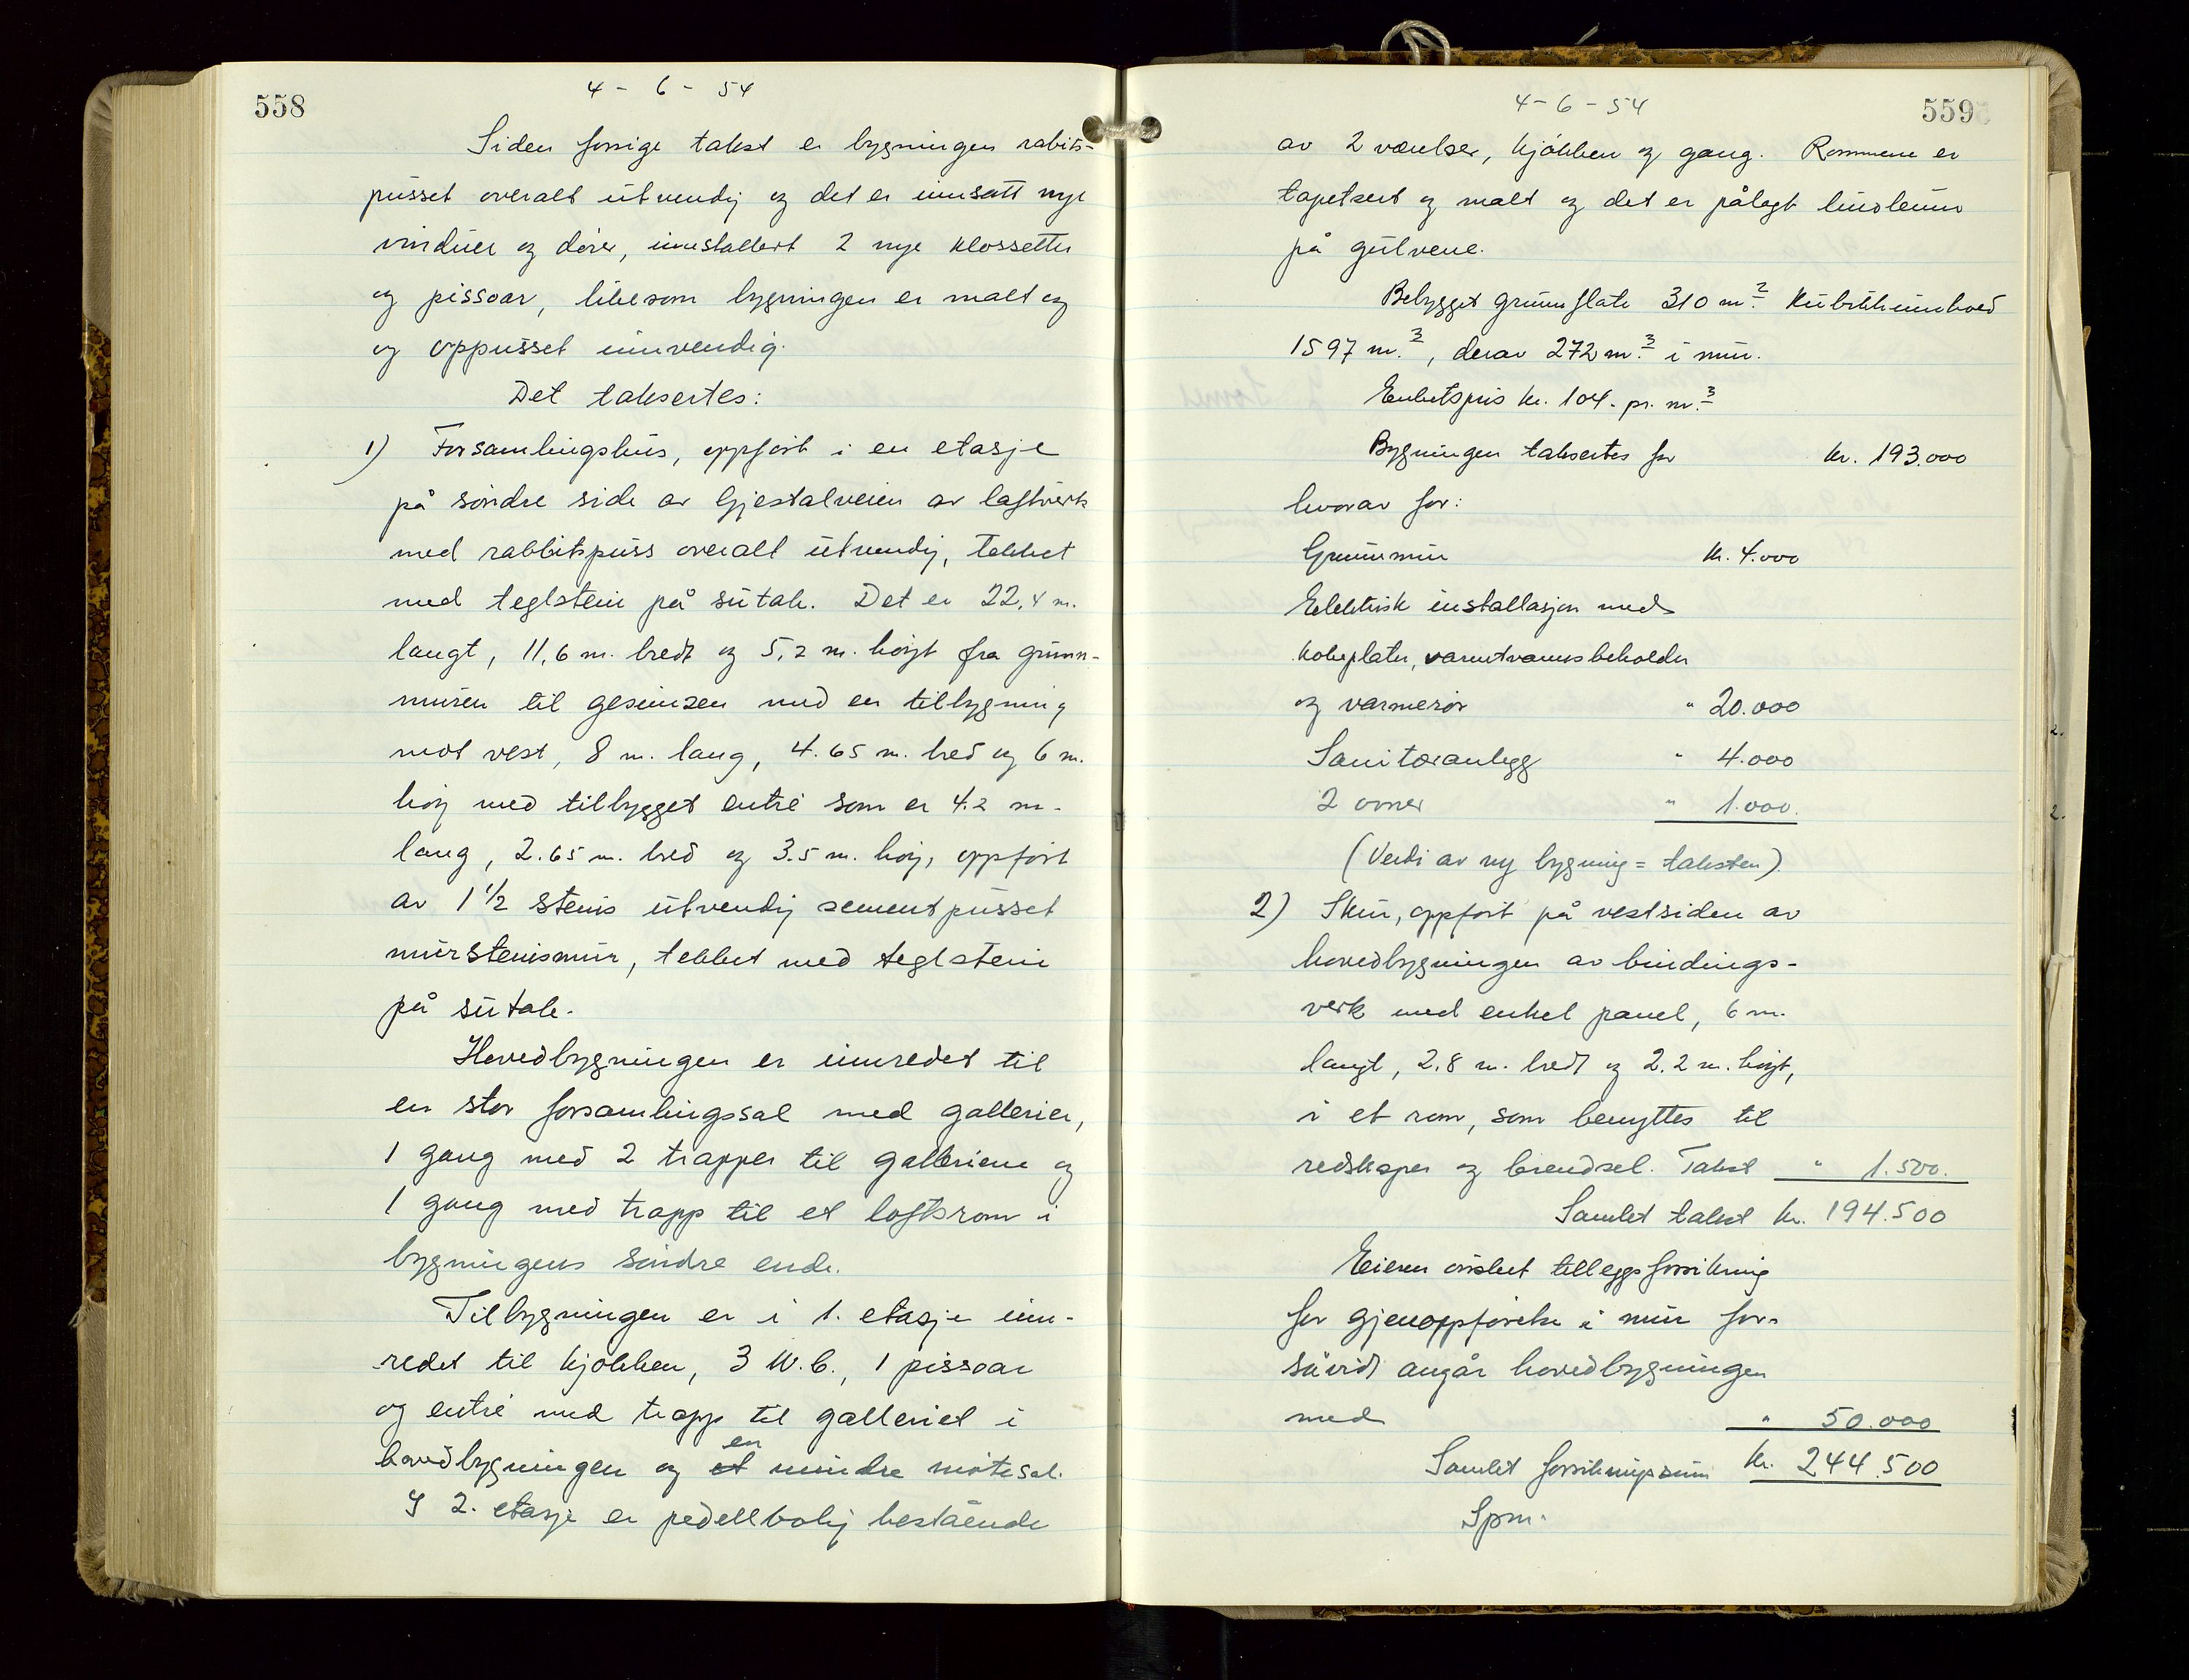 558
4 - 6 - 54
Siden forrige takst er bygningen rabits-
pusset overalt utvendig og det er innsatt nye
vinduer og dører, innstallert 2 nye klossetter
og pissoar, likesom bygningen er malt og
og oppusset innvendig.
Det taksertes:
1) Forsamlingshus, oppført i en etasje
på søndre side av Gjestalveien av laftverk
med rabbitspuss overalt utvendig, tekket
med teglstein på sutak. Det er 22,4 m.
langt, 11,6 m. bredt og 5,2 m. høyt fra grunn-
muren til gesimsen med en tilbygning
mot vest, 8 m. lang, 4.65 m. bred og 6 m.
høy med tilbygget entré som er 4.2 m.
lang, 2.65 m. bred og 3.5 m. høy, oppført
av 1 1/2 steins utvendig sementpusset
murstensmur, tekket med teglstein
på sutak.
Hovedbygningen er innredet til
en stor forsamlingssal med gallerier,
1 gang med 2 trapper til galleriene og
1 gang med trapp til et loftsrom i
bygningens søndre ende.
Tilbygningen er i 1. etasje inn-
redet til kjøkken, 3 W.C., 1 pissoar
og entré med trapp til galleriet i
en
hovedbygningen og et mindre møtesal.
I 2. etasje er pedellbolig bestående
559
4 - 6 - 54
av 2 værelser, kjøkken og gang. Rommene er
tapetsert og malt og det er pålagt linoleum
på gulvene.
Bebygget grunnflate 310 m.² Kubikkinnhold
1597 m.³, derav 272 m.³ i mur.
Enhetspris kr. 104.- pr. m.³
Bygningen taksertes for kr. 193.000
hvorav for:
Grunnmur kr. 4.000
Elektrisk installasjon med
kokeplater, varmtvannsbeholder
og varmerør " 20.000
Sanitæranlegg " 4.000
2 ovner " 1.000.
(Verdi av ny bygning = taksten).
2) Skur, oppført på vestsiden av
hovedbygningen av bindings-
verk med enkel panel, 6 m.
langt, 2.8 m. bredt og 2.2 m. høyt,
i et rom, som benyttes til
redskaper og brendsel. Takst " 1.500.
Samlet takst kr. 194.500
Eieren ønsket tilleggsforsikring
for gjenoppførelse i mur for-
såvidt angår hovedbygningen
med " 50.000
Samlet forsikringssum kr. 244.500
Spm.